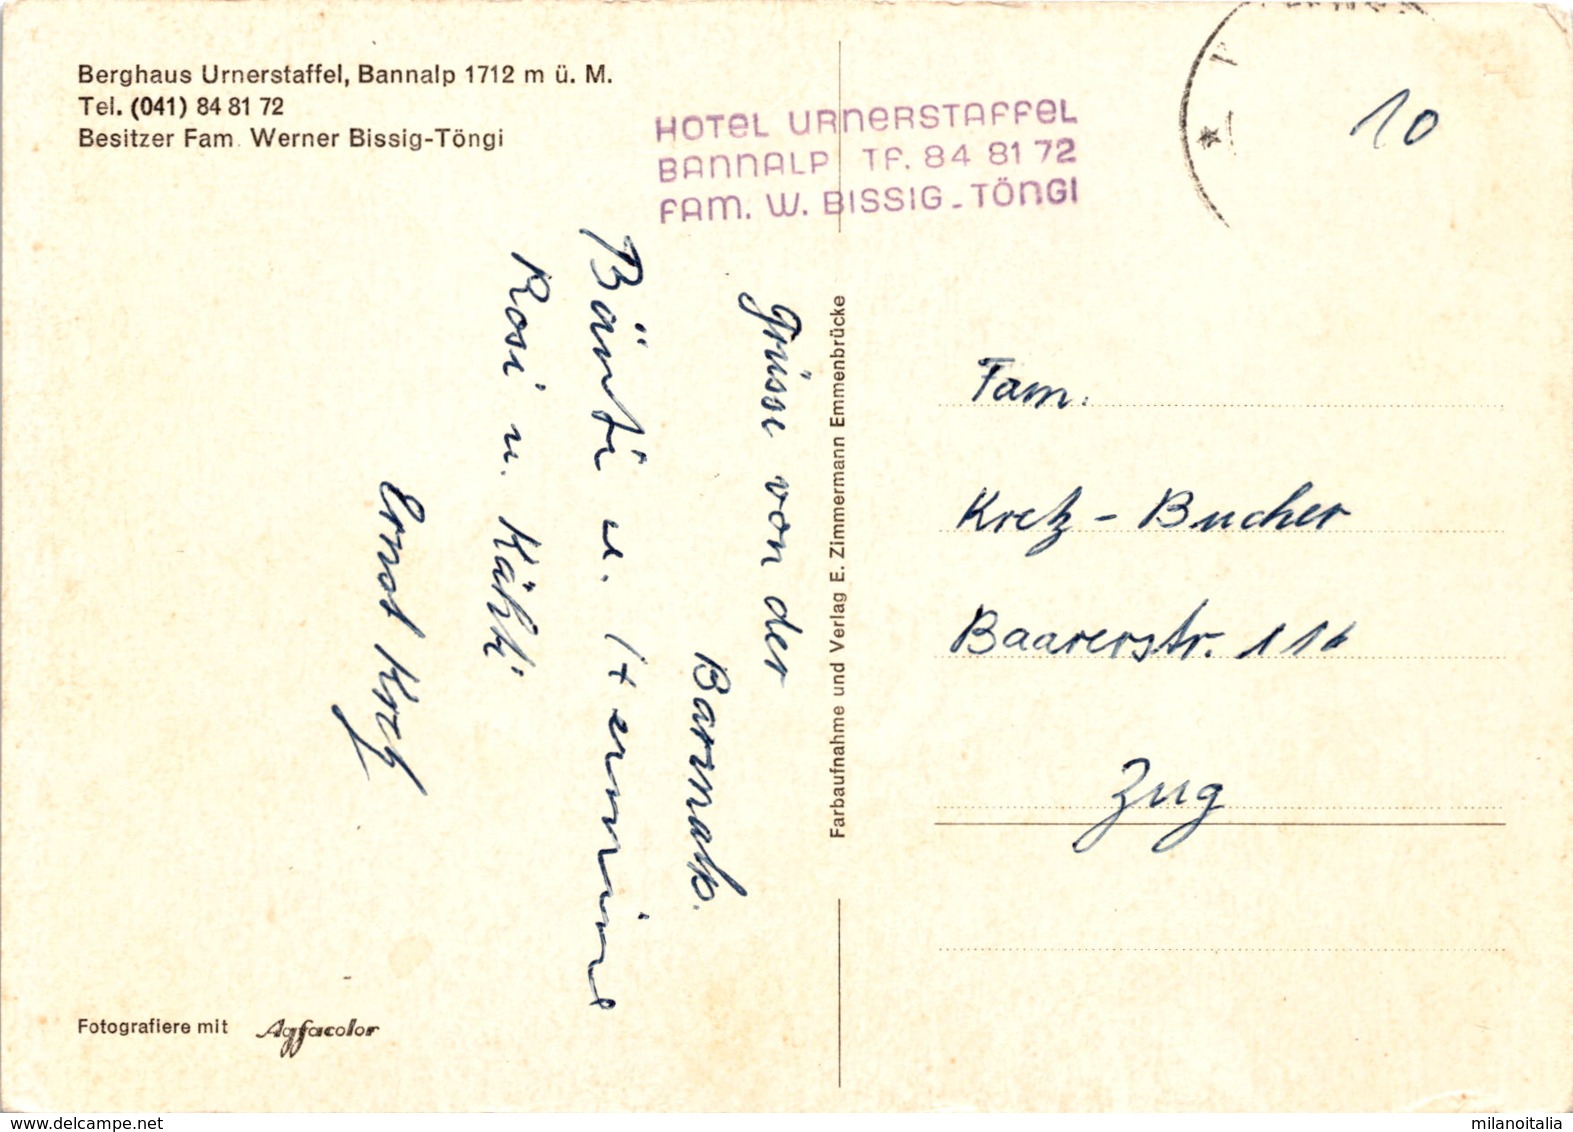 Berghaus Urnerstaffel, Bannalp 1712 m ü. M.
Tel. (041) 84 81 72
Besitzer Fam. Werner Bissig-Töngi
HOTEL URNERSTAFFEL
BANNALP TF. 84 81 72
FAM. W. BISSIG-TÖNGI
10
Grüsse von der
Bannalp.
Bänti u. Hermine
Rosi u. Käthi
Ernst Kretz
Farbaufnahme und Verlag E. Zimmermann Emmenbrücke
Fam.
Kretz-Bucher
Baarerstr. 116
Zug
Fotografiere mit Agfacolor
www.delcampe.net
milanoitalia